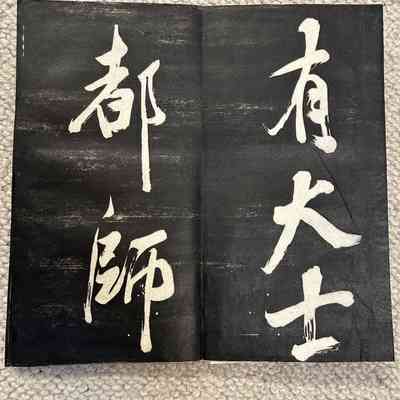 有大士
都師